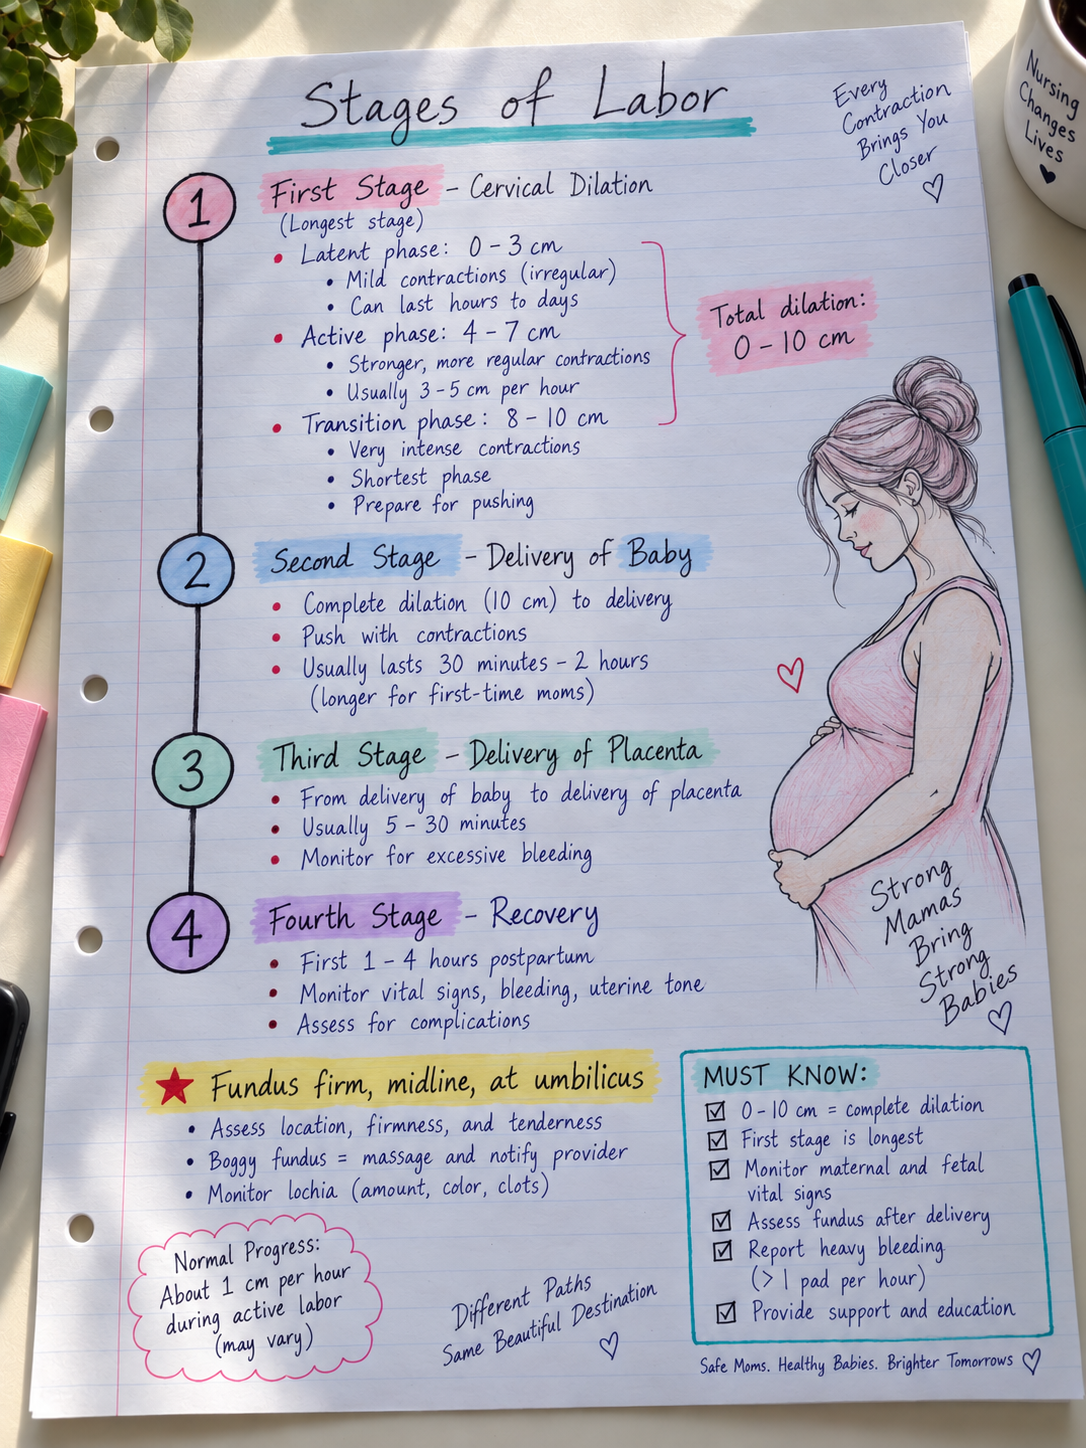 Stages of Labor
Every
Contraction
Brings You
Closer
Nursing
Changes
Lives
1
First Stage – Cervical Dilation
(Longest stage)
• Latent phase: 0 – 3 cm
• Mild contractions (irregular)
• Can last hours to days
• Active phase: 4 – 7 cm
• Stronger, more regular contractions
• Usually 3 – 5 cm per hour
• Transition phase: 8 – 10 cm
• Very intense contractions
• Shortest phase
• Prepare for pushing
Total dilation:
0 – 10 cm
2
Second Stage – Delivery of Baby
• Complete dilation (10 cm) to delivery
• Push with contractions
• Usually lasts 30 minutes – 2 hours
(longer for first-time moms)
3
Third Stage – Delivery of Placenta
• From delivery of baby to delivery of placenta
• Usually 5 – 30 minutes
• Monitor for excessive bleeding
4
Fourth Stage – Recovery
• First 1 – 4 hours postpartum
• Monitor vital signs, bleeding, uterine tone
• Assess for complications
Strong
Mamas
Bring
Strong
Babies
Fundus firm, midline, at umbilicus
• Assess location, firmness, and tenderness
• Boggy fundus = massage and notify provider
• Monitor lochia (amount, color, clots)
MUST KNOW:
0 – 10 cm = complete dilation
First stage is longest
Monitor maternal and fetal
vital signs
Assess fundus after delivery
Report heavy bleeding
(> 1 pad per hour)
Provide support and education
Normal Progress:
About 1 cm per hour
during active labor
(may vary)
Different Paths
Same Beautiful Destination
Safe Moms. Healthy Babies. Brighter Tomorrows